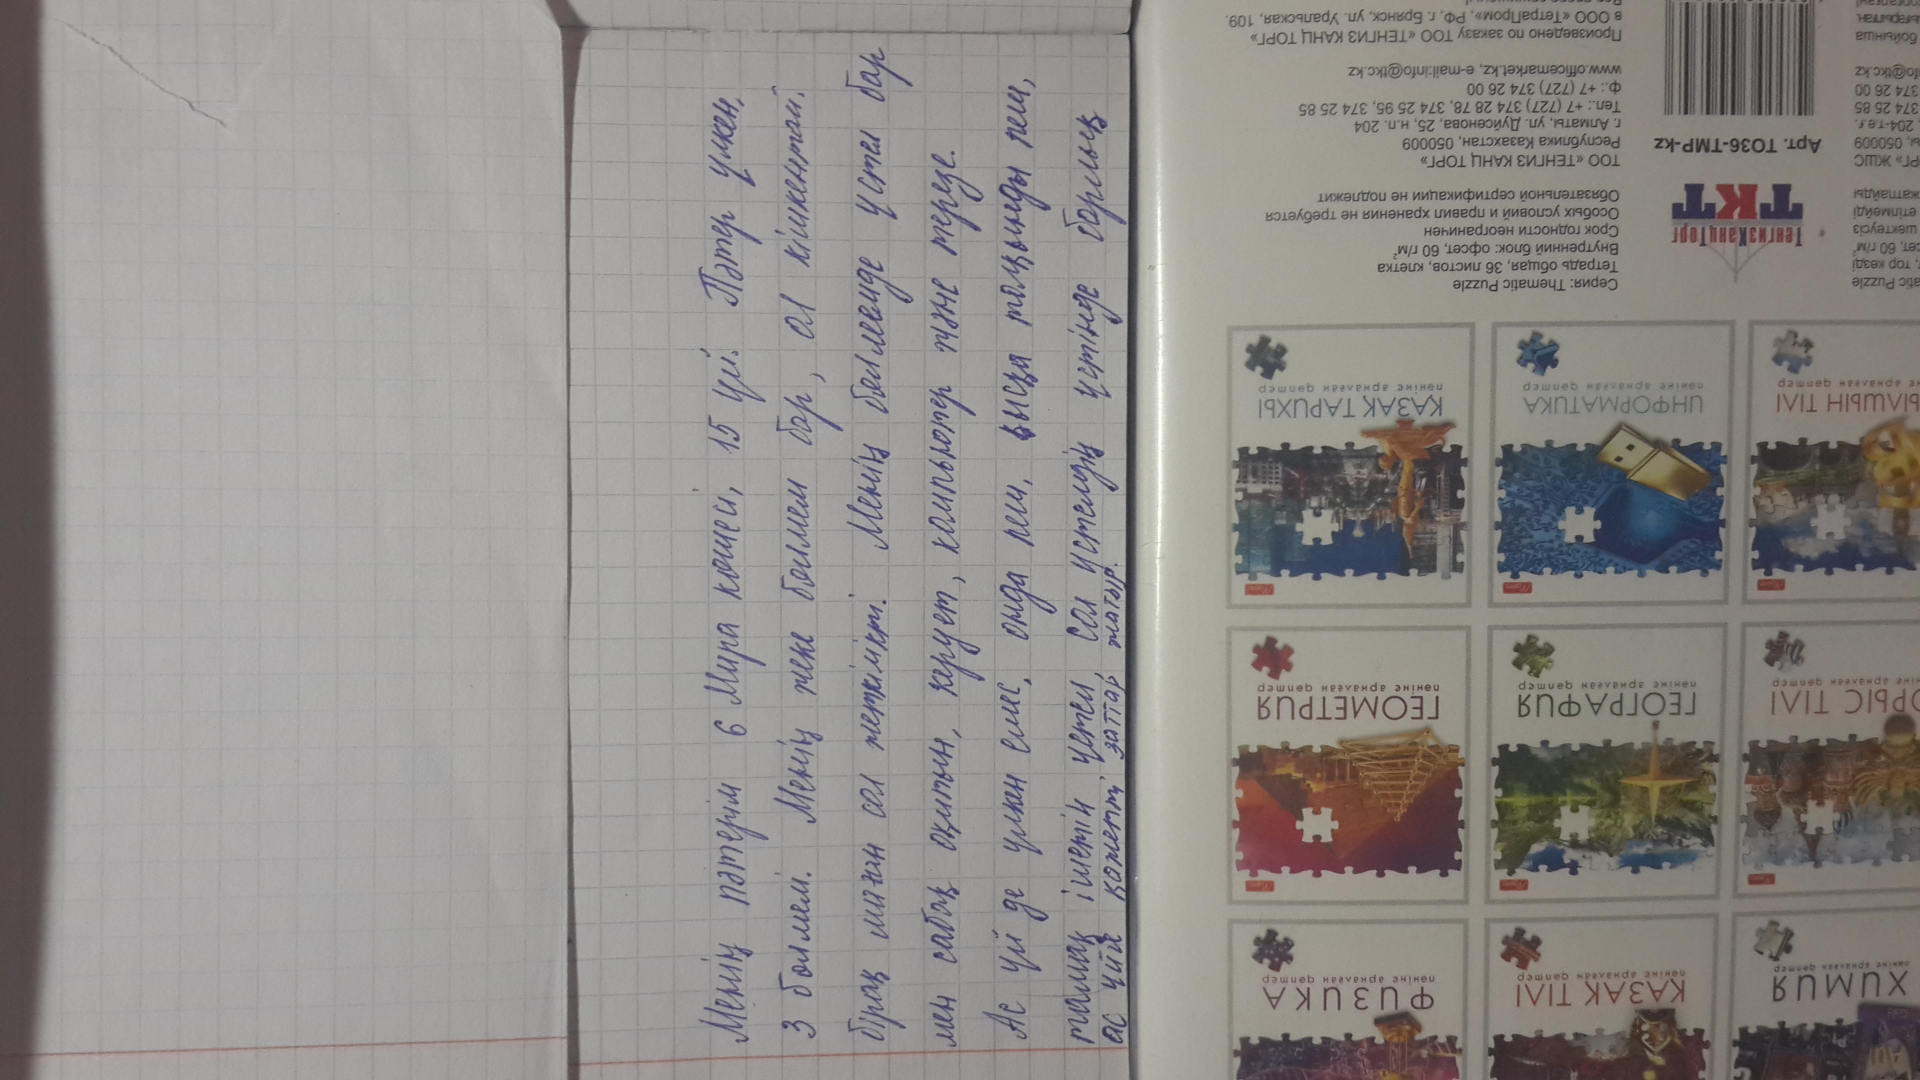 Менің пәтерім 6 Мира көшесі, 15 үй. Пәтер үлкен,
3 бөлмелі. Менің жеке бөлмем бар, ол кішкентай,
бірақ маған сол жеткілікті. Менің бөлмемде үстел бар
мен сабақ оқитын, керует, компьютер және терезе.
Ас үй де үлкен емес, онда пеш, қысқа толқынды пеш,
тамақ ішетін үстел, сол үстелдің үстінде барлық
ас үйге қажетті заттар жатыр.
Серия: Thematic Puzzle
Тетрадь общая, 36 листов, клетка
Внутренний блок: офсет, 60 г/м²
Срок годности неограничен
Особых условий и правил хранения не требуется
Обязательной сертификации не подлежит
ТОО «ТЕНГИЗ КАНЦ ТОРГ»
Республика Казахстан, 050009
г. Алматы, ул. Дуйсенова, 25, н.п. 204
Тел.: +7 (727) 374 28 78, 374 25 95, 374 25 85
ф.: +7 (727) 374 26 00
www.officemarket.kz, e-mail:info@tkc.kz
Произведено по заказу ТОО «ТЕНГИЗ КАНЦ ТОРГ»
в ООО «ТетраПром», РФ, г. Брянск, ул. Уральская, 109.
ТенгизКанцТорг
ТКТ
Арт. ТО36-ТМР-kz
ХИМИЯ
ҚАЗАҚ ТІЛІ
пәніне арналған дәптер
ФИЗИКА
пәніне арналған дәптер
ОРЫС ТІЛІ
пәніне арналған дәптер
ГЕОГРАФИЯ
пәніне арналған дәптер
ГЕОМЕТРИЯ
пәніне арналған дәптер
ИНФОРМАТИКА
пәніне арналған дәптер
ҚАЗАҚ ТАРИХЫ
пәніне арналған дәптер